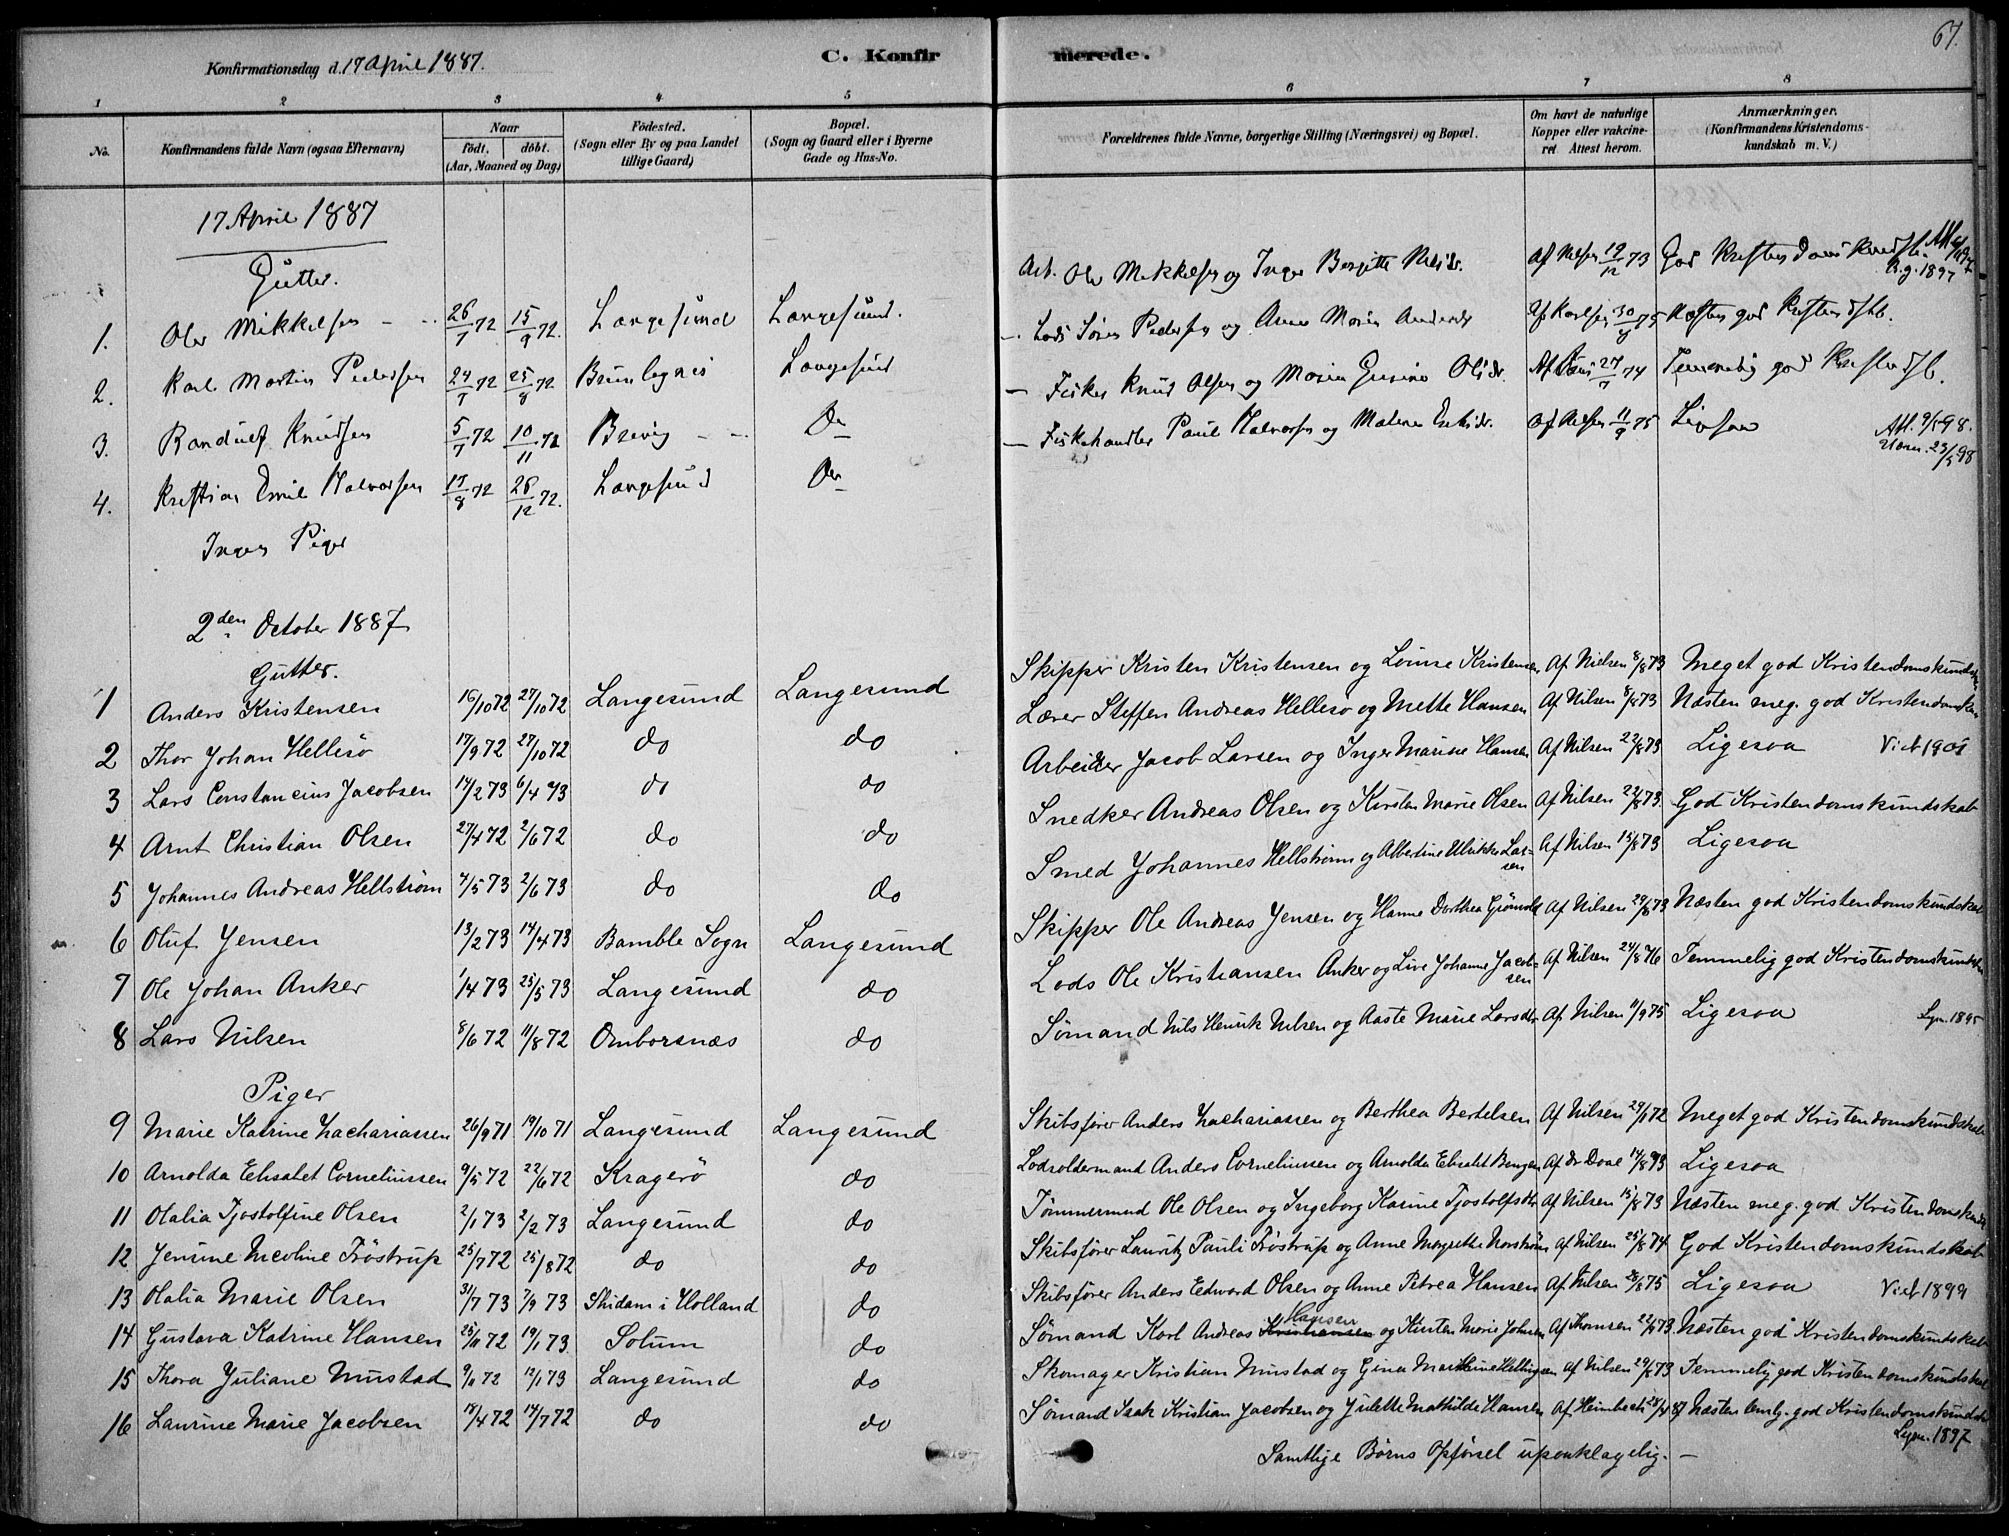 67.
Konfirmationsdag d. 17 April 1887.
C. Konfirmerede.
1 2 3 4 5 6 7 8
No.
Konfirmandens fulde Navn (ogsaa Efternavn)
Naar
født, døbt.
(Aar, Maaned og Dag)
Fødested.
(Sogn eller By og paa Landet tillige Gaard)
Bopæl.
(Sogn og Gaard eller i Byerne Gade og Hus-No.
Forældrenes fulde Navne, borgerlige Stilling (Næringsvei) og Bopæl.
Om havt de naturlige Kopper eller vakcineret Attest herom.
Anmærkninger.
(Konfirmandens Kristendomskundskab m. V.)
17 April 1887
Gutter.
1. Ole Mikkelsen 26/7 72 15/9 72. Langesund Langesund. Arb. Ole Mikkelsen og Inger Bergitte Af Nilsen 19/12 73 God Kristendomskundsk. 1897
2. Karl Martin Pedersen 24/7 72 25/8 72 Brunlagnes Langesund Lods Søren Pedersen og Anne Maren Andersd Af Karlsen 30/8 75 Næsten god Kristendsk.
3. Randulf Knudsen 5/7 72 10/11 72 Brevig Do Fisker Knud Olsen og Maren Gusine Olsdr. Af 27/7 74 Temmelig god Kristendsk.
4. Kristian Emil Halvorsen 17/8 72 26/12 72. Langesund Do Fiskehandler Paul Halvorsen og Malene Af Nilsen 11/9 75 Ligesaa Att. 9/5 98. 23/5 98
Ingen Piger
2den October 1887
Gutter.
1 Anders Kristensen 16/10 72 27/10 72 Langesund Langesund Skipper Kristen Kristensen og Louise Kristensen Af Nielsen 8/8 73 Meget god Kristendomskundsk
2 Thor Johan Hellesö 17/9 72 27/10 72 do do Lærer Steffen Andreas Hellesö og Mette Hansen Af Nilsen 8/8 73 Næsten meg. god Kristendomsk
3 Lars Constancius Jacobsen 14/2 73 6/4 73 do do Arbeider Jacob Larsen og Inger Marine Hansen Af Nilsen 22/8 73 Ligesaa Viet 1901
4 Arnt Christian Olsen 27/4 72 2/6 72 do do Snedker Andreas Olsen og Kirsten Marie Olsen Af Nilsen 22/8 73. God Kristendomskundskab
5 Johannes Andreas Hellstrøm 4/5 73 2/6 73 do do Smed Johannes Hellstrøm og Albertine Ulrikke Larsen Af Nilsen 15/8 73 Ligesaa
6 Oluf Jensen 13/2 73 14/4 73 Bamble Sogn Langesund Skipper Ole Andreas Jensen og Hanne Dorthea Grønvold Af Nilsen 29/8 73 Næsten god Kristendomskundskab
7 Ole Johan Anker 1/4 73 25/5 73 Langesund do Lods Ole Kristiansen Anker og Live Johanne Jacobsen Af Nilsen 24/8 76 Temmelig god Kristendomskundsk
8 Lars Nilsen 8/6 72 11/8 72 Omborsnæs do Sømand Nils Henrik Nilsen og Aaste Marie Larsdtr Af Nilsen 11/9 75 Ligesaa Lyn. 1895
Piger
9 Marie Katrine Zachariassen 26/9 71 19/10 71 Langesund Langesund Skibsfører Anders Zachariassen og Berthea Bertelsen Af Nilsen 29/1 72 Meget god Kristendomskundskab
10 Arnolda Elisabet Corneliussen 9/5 72 22/6 72 Kragerö do Lodsoldermand Anders Corneliussen og Arnolda Elisabet Bengen Af Dr Doae 14/8 73 Ligesaa
11 Olalia Tjostolfine Olsen 2/1 73 2/2 73 Langesund do Tømmermand Ole Olsen og Ingeborg Karine Tjostolfsdtr Af Nilsen 15/8 73 Næsten meg. god Kristendomskunds
12 Jensine Nicoline Tröstrup 25/7 72 25/8 72 do do Skibsfører Lauritz Pauli Tröstrup og Anne Margrethe Norström Af Nilsen 25/8 74 God Kristendomskundskab
13 Olalia Marie Olsen 31/7 73 7/9 73 Skidam i Holland do Skibsfører Anders Edvard Olsen og Anne Petrea Hansen Af Nilsen 28/8 75 Ligesaa Viet 1899
14 Gustava Katrine Hansen 25/11 72 19/1 73 Solum do Sømand Karl Andreas Kristiansen Hansen og Kirsten Marie Johnsen Af Thomsen 22/8 73. Næsten god Kristendomskundskab
15 Thora Juliane Mustad 9/11 72 12/1 73 Langesund do Skomager Kristian Mustad og Gina Marthine Hellingsen Af Nilsen 29/8 73 Temmelig god Kristendomskundskab
16 Laurine Marie Jacobsen 18/4 72 14/7 72 do do Sømand Isak Kristian Jacobsen og Julette Mathilde Hansen Af Heimbeck 25/4 87 Næsten teml. god Kristendomskundsk
Lyn. 1897
Samtlige Børns Opførsel upaaklagelig. —